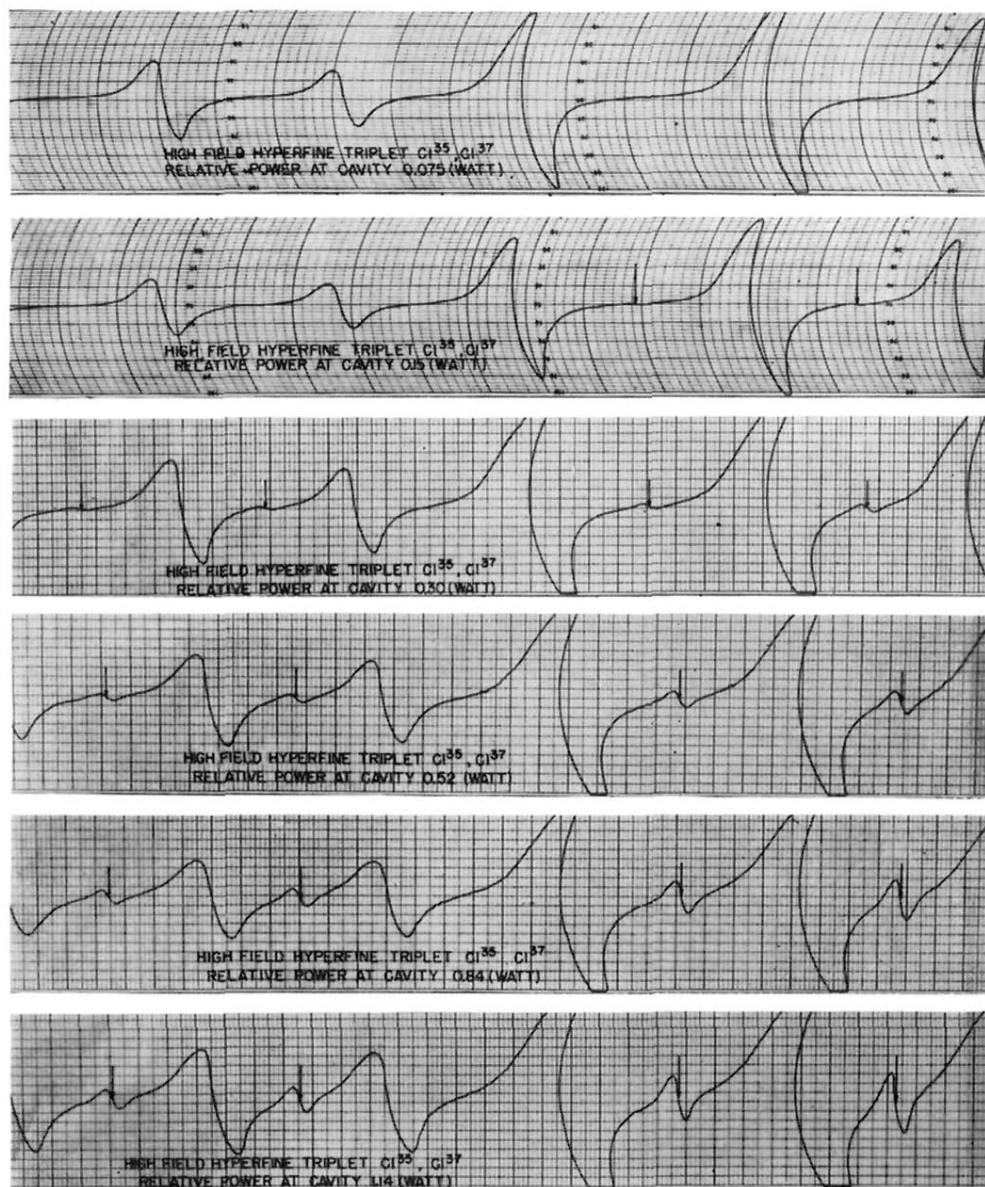 HIGH FIELD HYPERFINE TRIPLET Cl³⁵, Cl³⁷
RELATIVE POWER AT CAVITY 0.075 (WATT)
HIGH FIELD HYPERFINE TRIPLET Cl³⁵, Cl³⁷
RELATIVE POWER AT CAVITY 0.15 (WATT)
HIGH FIELD HYPERFINE TRIPLET Cl³⁵, Cl³⁷
RELATIVE POWER AT CAVITY 0.30 (WATT)
HIGH FIELD HYPERFINE TRIPLET Cl³⁵, Cl³⁷
RELATIVE POWER AT CAVITY 0.52 (WATT)
HIGH FIELD HYPERFINE TRIPLET Cl³⁵, Cl³⁷
RELATIVE POWER AT CAVITY 0.84 (WATT)
HIGH FIELD HYPERFINE TRIPLET Cl³⁵, Cl³⁷
RELATIVE POWER AT CAVITY 1.14 (WATT)